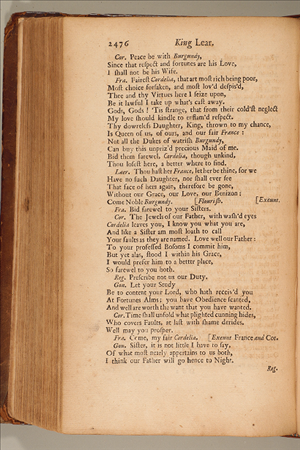 2476 King Lear.
Cor. Peace be with Burgundy,
Since that respect and fortunes are his Love,
I shall not be his Wife.
Fra. Fairest Cordelia, that art most rich being poor,
Most choice forsaken, and most lov'd despis'd,
Thee and thy Virtues here I seize upon,
Be it lawful I take up what's cast away.
Gods, Gods! 'Tis strange, that from their cold'st neglect
My love should kindle to enflam'd respect.
Thy dowreless Daughter, King, thrown to my chance,
Is Queen of us, of ours, and our fair France:
Not all the Dukes of watrish Burgundy,
Can buy this unpriz'd precious Maid of me.
Bid them farewel, Cordelia, though unkind,
Thou losest here, a better where to find.
Lear. Thou hast her France, let her be thine, for we
Have no such Daughter, nor shall ever see
That face of hers again, therefore be gone,
Without our Grace, our Love, our Benizon:
Come Noble Burgundy. [Flourish. [Exeunt.
Fra. Bid farewel to your Sisters.
Cor. The Jewels of our Father, with wash'd eyes
Cordelia leaves you, I know you what you are,
And like a Sister am most loath to call
Your faults as they are named. Love well our Father:
To your professed Bosoms I commit him,
But yet alas, stood I within his Grace,
I would prefer him to a better place,
So farewel to you both.
Reg. Prescribe not us our Duty.
Gon. Let your Study
Be to content your Lord, who hath receiv'd you
At Fortunes Alms; you have Obedience scanted,
And well are worth the want that you have wanted.
Cor. Time shall unfold what plighted cunning hides,
Who covers Faults, at last with shame derides.
Well may you prosper.
Fra. Come, my fair Cordelia. [Exeunt France and Cor.
Gon. Sister, it is not little I have to say,
Of what most nearly appertains to us both,
I think our Father will go hence to Night.
Reg.